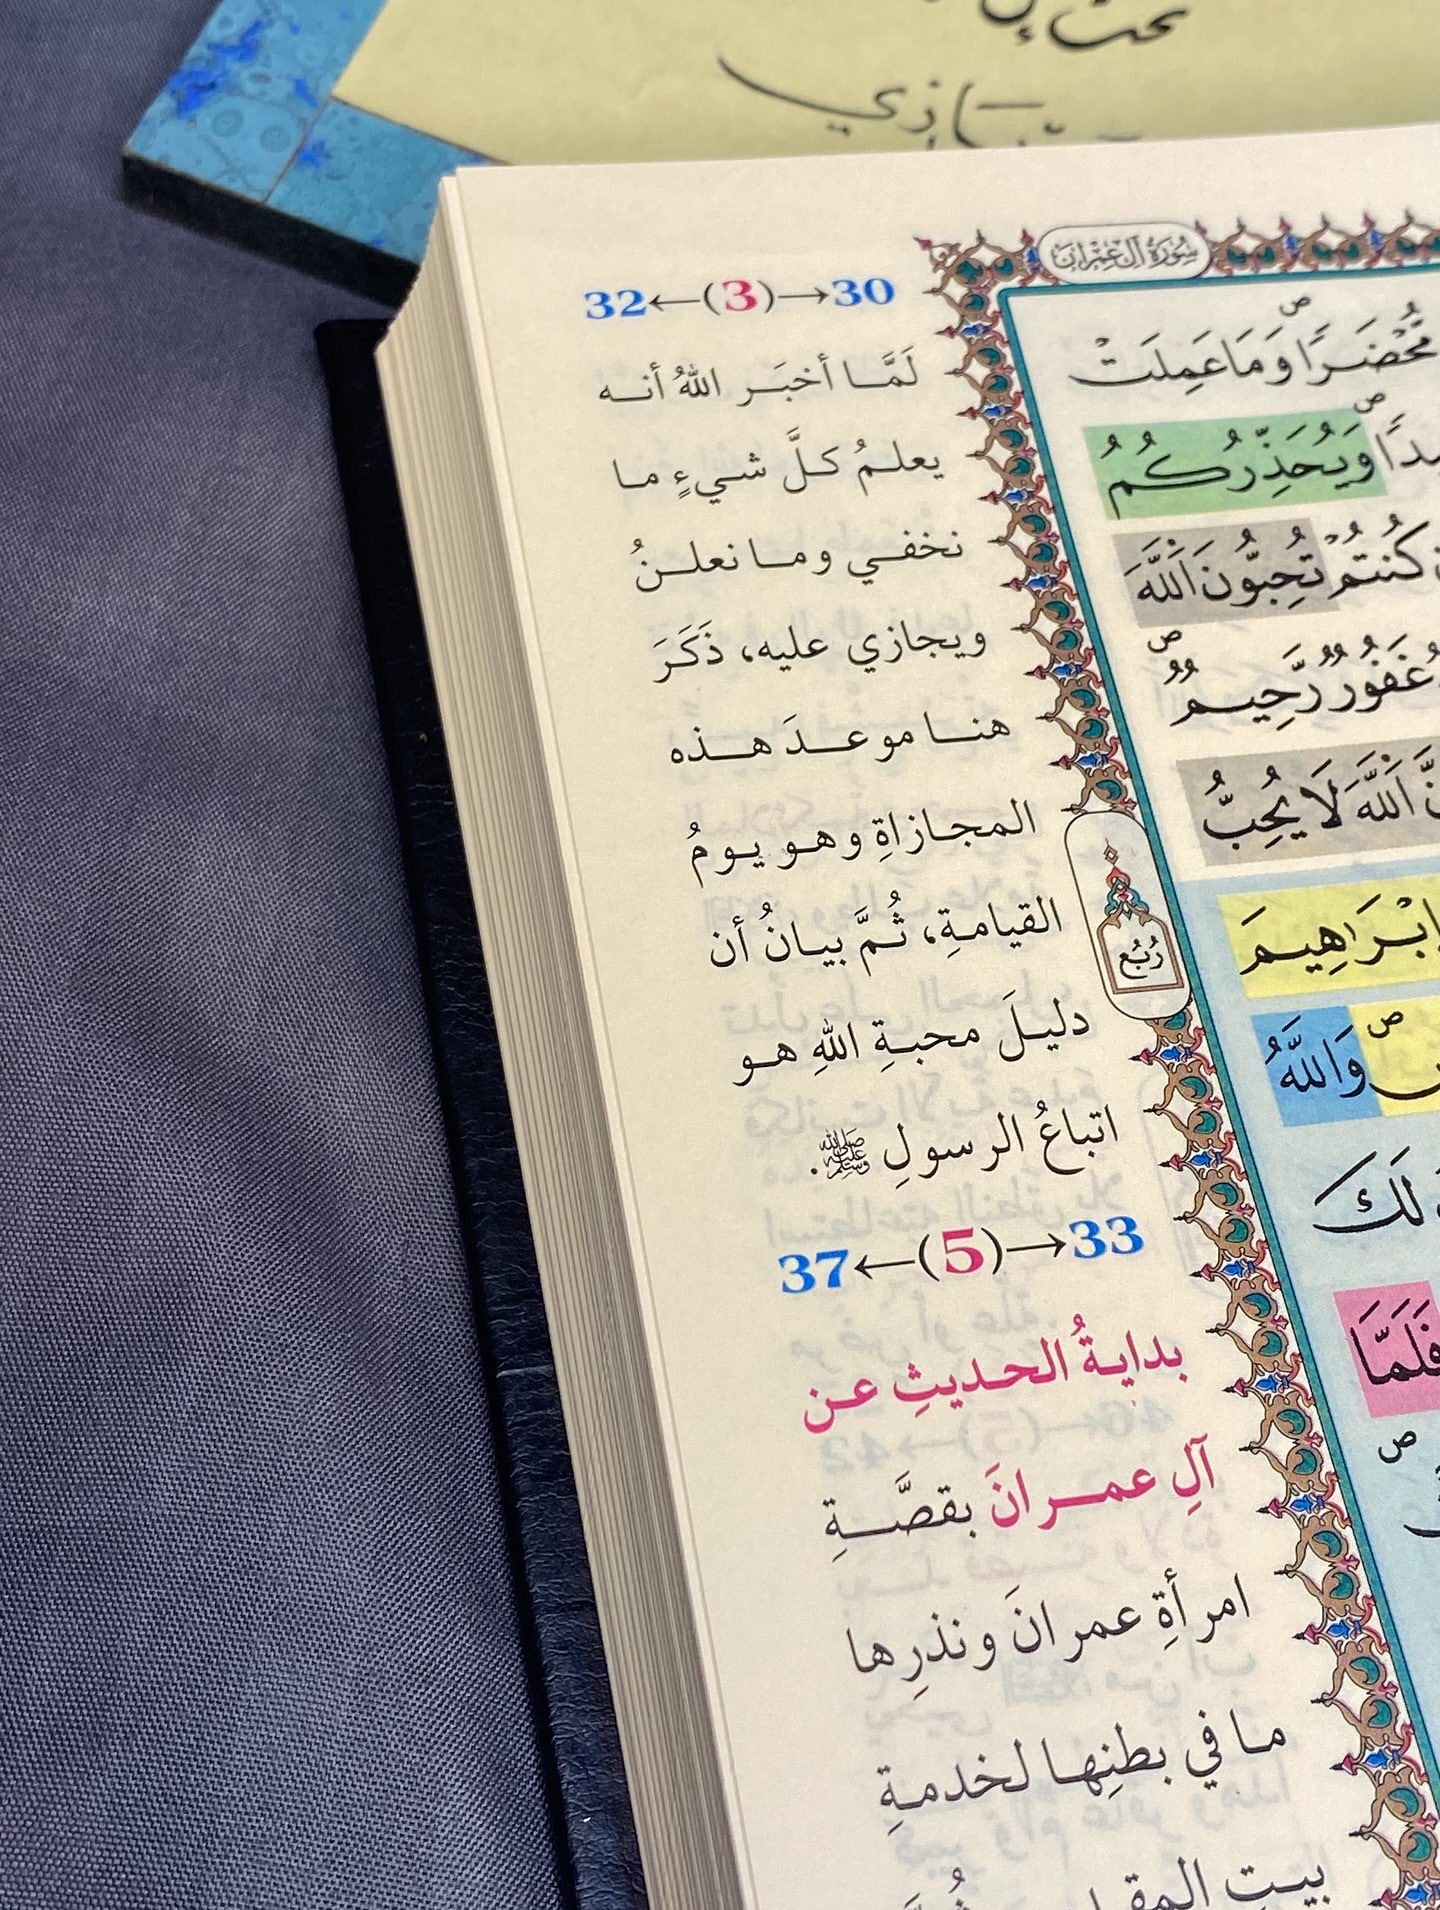 سُورَةُ آلِ عِمْرَانَ
30→(3)←32
لَمَّا أخبَر اللهُ أنه
يعلمُ كلَّ شيءٍ ما
نخفي وما نعلنُ
ويجازي عليه، ذَكَرَ
هنا موعدَ هذه
المجازاةِ وهو يومُ
القيامةِ، ثُمَّ بيانُ أن
دليلَ محبةِ اللهِ هو
اتباعُ الرسولِ ﷺ.
33→(5)←37
بدايةُ الحديثِ عن
آلِ عمرانَ بقصَّةِ
امرأةِ عمرانَ ونذرِها
ما في بطنِها لخدمةِ
بيتِ
رُبُع
مُّحْضَرًا وَمَا عَمِلَتْ
وَيُحَذِّرُكُمُ
كُنتُمْ تُحِبُّونَ اللَّهَ
غَفُورٌ رَّحِيمٌ
اللَّهَ لَا يُحِبُّ
إِبْرَاهِيمَ
وَاللَّهُ
لَكَ
فَلَمَّا